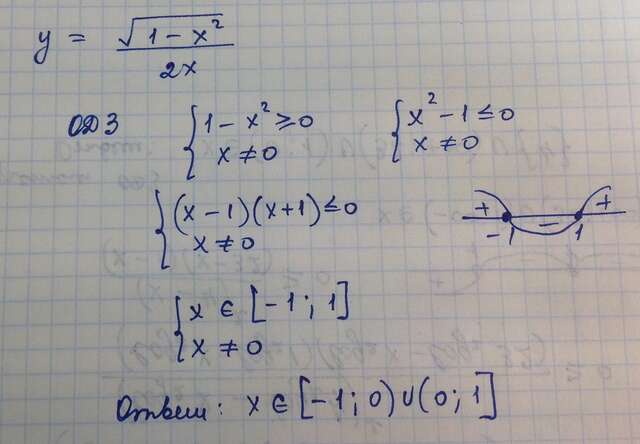 y = √(1 - x²) / 2x
ОДЗ { 1 - x² ≥ 0 { x² - 1 ≤ 0
x ≠ 0 x ≠ 0
{ (x - 1)(x + 1) ≤ 0
x ≠ 0
+ - +
-1 1
{ x ∈ [-1; 1]
x ≠ 0
Ответ: x ∈ [-1; 0) ∪ (0; 1]